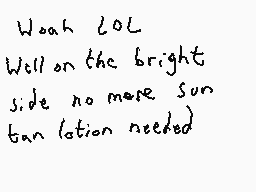 Woah LOL
Well on the bright
side no more sun
tan lotion needed